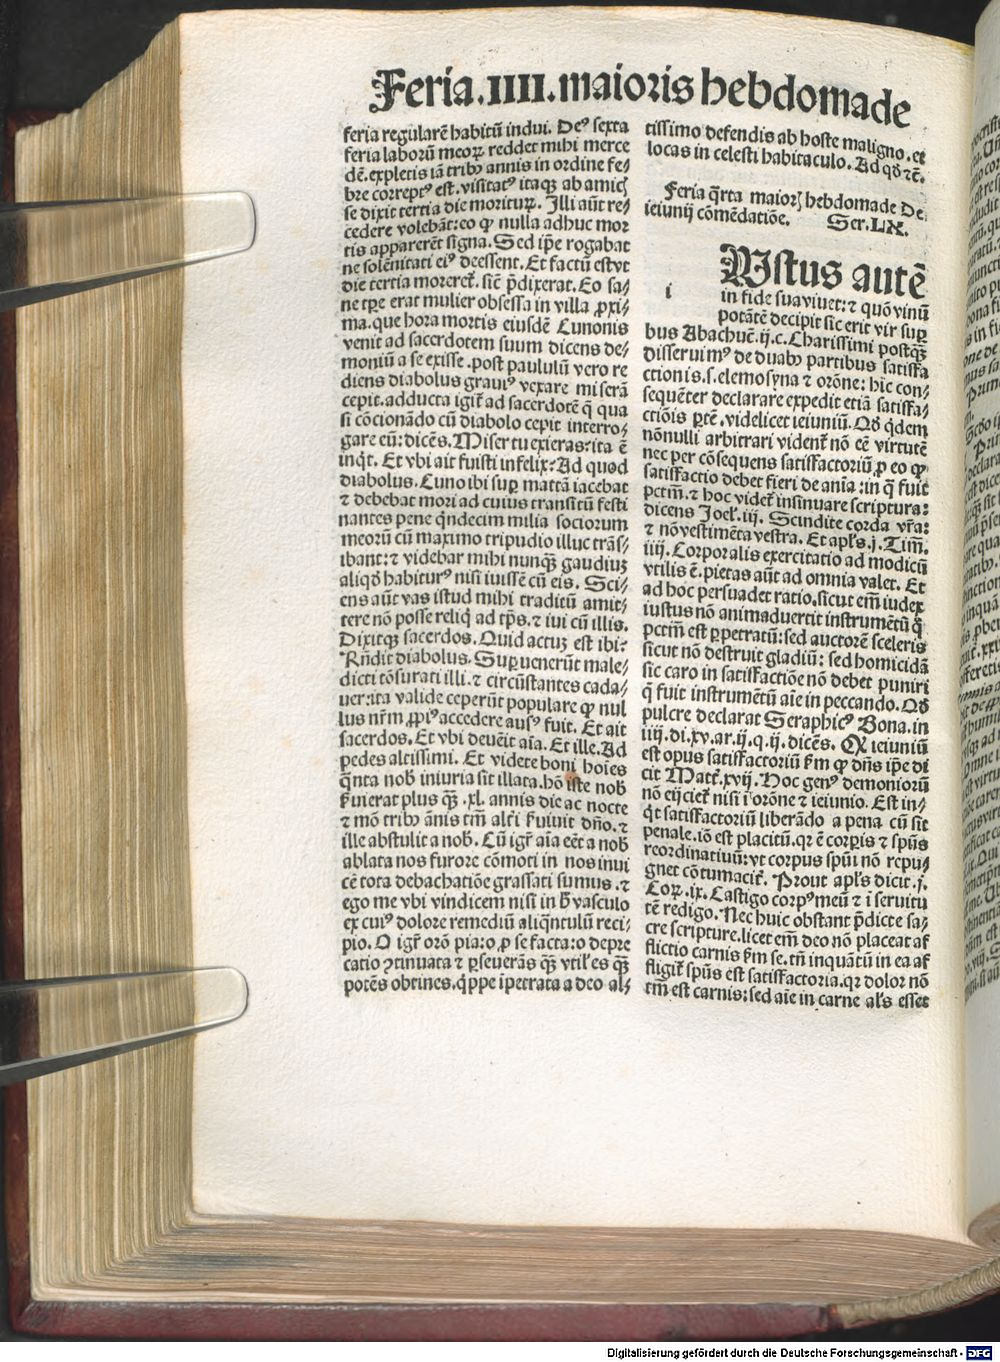 Feria.IIII.maioris hebdomade
feria regularē habitū indui. Deꝰ sexta
feria laborū meoꝝ reddet mihi merce
dē. expletis iā tribꝰ annis in ordine fe⸗
bre correptꝰ est. visitatꝰ itaqꝫ ab amicꝭ
se dixit tertia die moriturꝝ. Illi aūt re⸗
cedere volebāt: eo ꝙ nulla adhuc mor
tis apparerēt signa. Sed ipē rogabat
ne solēnitati eiꝰ deessent. Et factū est vt
die tertia moreret̄. sic̄ p̄dixerat. Eo sa⸗
ne tp̄e erat mulier obsessa in villa ꝓxi⸗
ma. que hora mortis eiusdē Cunonis
venit ad sacerdotem suum dicens de⸗
moniū a se exisse. post paululū vero re
diens diabolus grauiꝰ vexare miserā
cepit. adducta igit̄ ad sacerdotē q̄ qua
si cōcionādo cū diabolo cepit interro⸗
gare cū: dicēs. Miser tu exieras: ita ē
inq̇t. Et vbi ait fuisti infelix? Ad quod
diabolus. Cuno ibi suꝑ mattā iacebat
⁊ debebat mori ad cuius transitū festi
nantes pene q̇ndecim milia sociorum
meorū cū maximo tripudio illuc trās⸗
ibant: ⁊ videbar mihi nunqꝫ̄ gaudiuꝫ
aliqd̓ habiturꝰ nisi iuissē cū eis. Sci⸗
ens aūt vas istud mihi traditū amit⸗
tere nō posse reliq̇ ad tp̄s. ⁊ iui cū illis.
Dixitqꝫ sacerdos. Quid actuꝫ est ibi?
Rn̄dit diabolus. Suꝑuenerūt male⸗
dicti tōsurati illi. ⁊ circūstantes cada⸗
uer: ita valide ceperūt populare ꝙ nul
lus nr̄m ꝓpiꝰ accedere ausꝰ fuit. Et ait
sacerdos. Et vbi deuēit aīa. Et ille. Ad
pedes altissimi. Et videte boni hoīes
q̄nta nob̓ iniuria sit illata. hō iste nob̓
ẜuierat plus qꝫ̄ .xl. annis die ac nocte
⁊ mō tribꝰ ānis tm̄ alt̓i ẜuiuit dn̄o. ⁊
ille abstulit a nob̓. Cū igr̄ aīa eēt a nob̓
ablata nos furore cōmoti in nos inui
cē tota debachatiōe grassati sumus. ⁊
ego me vbi vindicem nisi in h̓ vasculo
ex cuiꝰ dolore remediū aliq̄ntulū reci⸗
pio. O igr̄ orō pia: o ꝓ se facta: o depre
catio ꝯtinuata ⁊ ꝑseuerās qꝫ̄ vtil̓es qꝫ̄
potēs obtines. q̇ppe īpetrata a deo al⸗
tissimo defendis ab hoste maligno. et
locas in celesti habitaculo. Ad qd̓ ⁊c̄.
Feria q̄rta maiorꝭ hebdomade De
ieiunij cōmēdatiōe. Ser.LIX.
IUstus autē
i
in fide sua viuet: ⁊ quō vinū
potātē decipit sic erit vir suꝑ
bus Abachuc̄.ij.c. Charissimi postqꝫ̄
disseruimꝰ de duabꝰ partibus satisfa
ctionis. s. elemosyna ⁊ orōne: hic con⸗
sequēter declarare expedit etiā satisfa⸗
ctiōis ꝑtē. videlicet ieiuniū. Qd̓ q̇dem
nōnulli arbitrari vident̄ nō eē virtutē
nec per cōsequens satisfactoriū ꝓ eo ꝙ
satisfactio debet fieri de anīa: in q̄ fuit
pctm̄. ⁊ hoc videt̄ insinuare scriptura:
dicens Joel̓. iij. Scindite corda vr̄a:
⁊ nō vestimēta vestra. Et apl̓s. j. Tim̄.
iiij. Corporalis exercitatio ad modicū
vtilis ē. pietas aūt ad omnia valet. Et
ad hoc persuadet ratio. sicut em̄ iudex
iustus nō animaduertit instrumētū q̇
pctm̄ est ꝑpetratū: sed auctorē sceleris
sicut nō destruit gladiū: sed homicidā
sic caro in satisfactiōe nō debet puniri
q̄ fuit instrumētū aīe in peccando. Qd̓
pulcre declarat Seraphicꝰ Bona. in
iiij. di. xv. ar. ij. q. ij. dicēs. Qꝫ ieiuniū
est opus satisfactoriū ẜm ꝙ dn̄s ipē di
cit Matt̄. xvij. Hoc genꝰ demoniorū
nō eijciet̄ nisi ī orōne ⁊ ieiunio. Est in⸗
q̇t satisfactoriū liberādo a pena cū sit
penale. iō est placitū. qꝛ ē corꝑis ⁊ spūs
reordinatiuū: vt corpus spūi nō repu⸗
gnet cōtumacit̄. Prout apl̓s dicit. j.
Coꝝ. ix. Castigo corpꝰ meū ⁊ ī seruitu
tē redigo. Nec huic obstant p̄dicte sa⸗
cre scripture. licet em̄ deo nō placeat af
flictio carnis ẜm se. tn̄ inquātū in ea af
fligit̄ spūs est satisfactoria. qꝛ dolor nō
tm̄ est carnis: sed aīe in carne al̓s esset
Digitalisierung gefördert durch die Deutsche Forschungsgemeinschaft - DFG